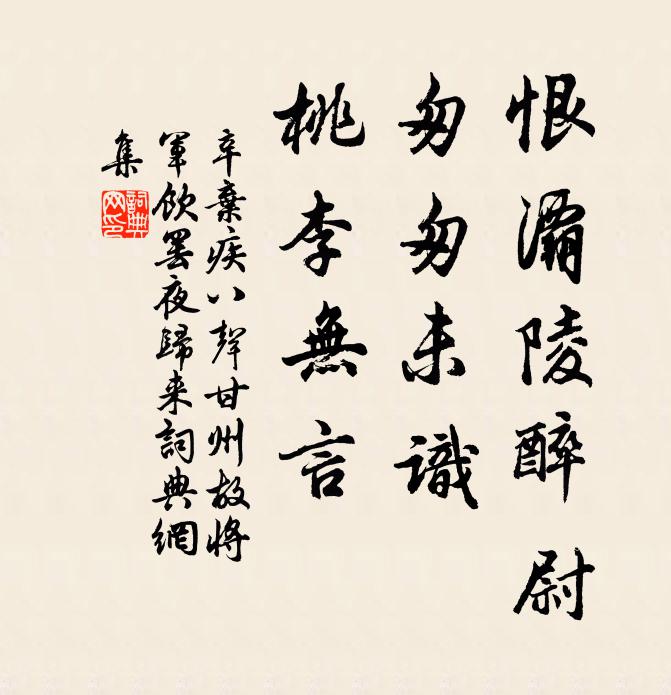 恨灞陵醉尉
匆匆未識
桃李無言
辛棄疾八聲甘州故將
軍飲罷夜歸来詞典網
集
詞典
网印